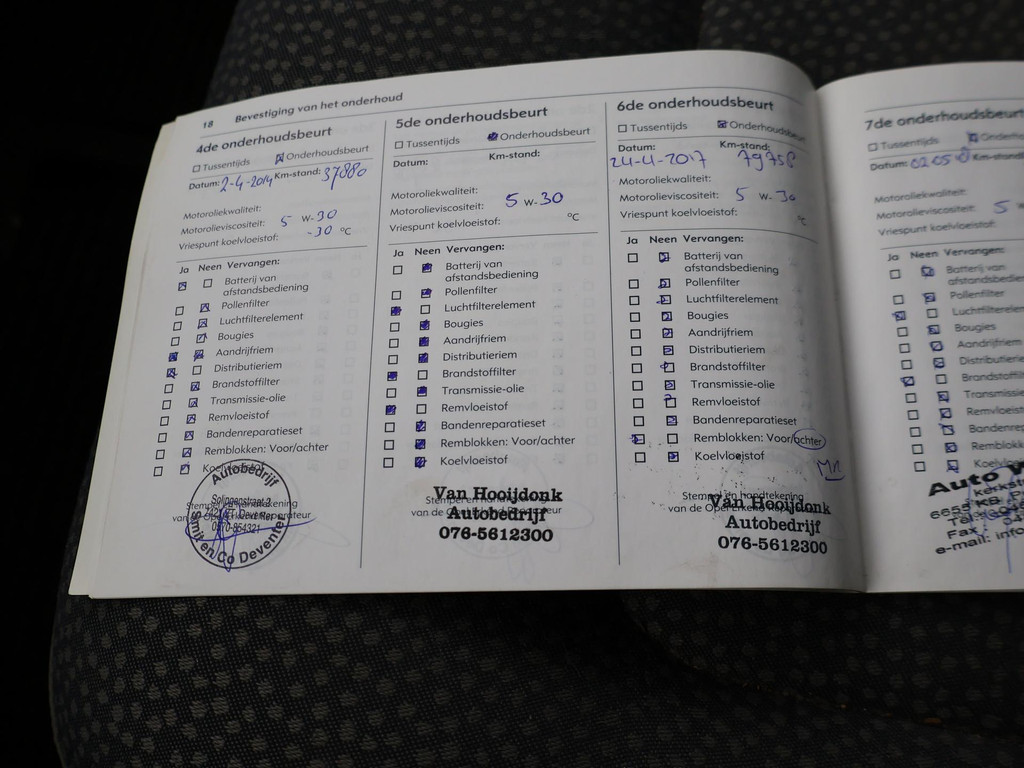 18 Bevestiging van het onderhoud
4de onderhoudsbeurt
Tussentijds Onderhoudsbeurt
Datum: 2-4-2014 Km-stand: 37880
Motoroliekwaliteit:
Motorolieviscositeit: 5 W-30
Vriespunt koelvloeistof: -30 °C
Ja Neen Vervangen:
Batterij van
afstandsbediening
Pollenfilter
Luchtfilterelement
Bougies
Aandrijfriem
Distributieriem
Brandstoffilter
Transmissie-olie
Remvloeistof
Bandenreparatieset
Remblokken: Voor/achter
Koelvloeistof
Autobedrijf
Solingenstraat
0570-854321
Smit en Co Deventer
5de onderhoudsbeurt
Tussentijds Onderhoudsbeurt
Datum: Km-stand:
Motoroliekwaliteit:
Motorolieviscositeit: 5 W-30
Vriespunt koelvloeistof: °C
Ja Neen Vervangen:
Batterij van
afstandsbediening
Pollenfilter
Luchtfilterelement
Bougies
Aandrijfriem
Distributieriem
Brandstoffilter
Transmissie-olie
Remvloeistof
Bandenreparatieset
Remblokken: Voor/achter
Koelvloeistof
Van Hooijdonk
Autobedrijf
076-5612300
6de onderhoudsbeurt
Tussentijds Onderhoudsbeurt
Datum: Km-stand:
24-4-2017 79758
Motoroliekwaliteit:
Motorolieviscositeit: 5 W-30
Vriespunt koelvloeistof: °C
Ja Neen Vervangen:
Batterij van
afstandsbediening
Pollenfilter
Luchtfilterelement
Bougies
Aandrijfriem
Distributieriem
Brandstoffilter
Transmissie-olie
Remvloeistof
Bandenreparatieset
Remblokken: Voor/achter
Koelvloeistof
Stempel en handtekening
van de Opel Erkend Reparateur
Van Hooijdonk
Autobedrijf
076-5612300
7de onderhoudsbeurt
Tussentijds
Datum: 02 05 Km-stand
Motoroliekwaliteit:
Motorolieviscositeit: 5
Vriespunt koelvloeistof:
Ja Neen Vervangen:
Batterij van
afstandsbediening
Pollenfilter
Luchtfilterelement
Bougies
Aandrijfriem
Distributieriem
Brandstoffilter
Transmissie
Remvloeistof
Auto
Tel
Fax
e-mail: info